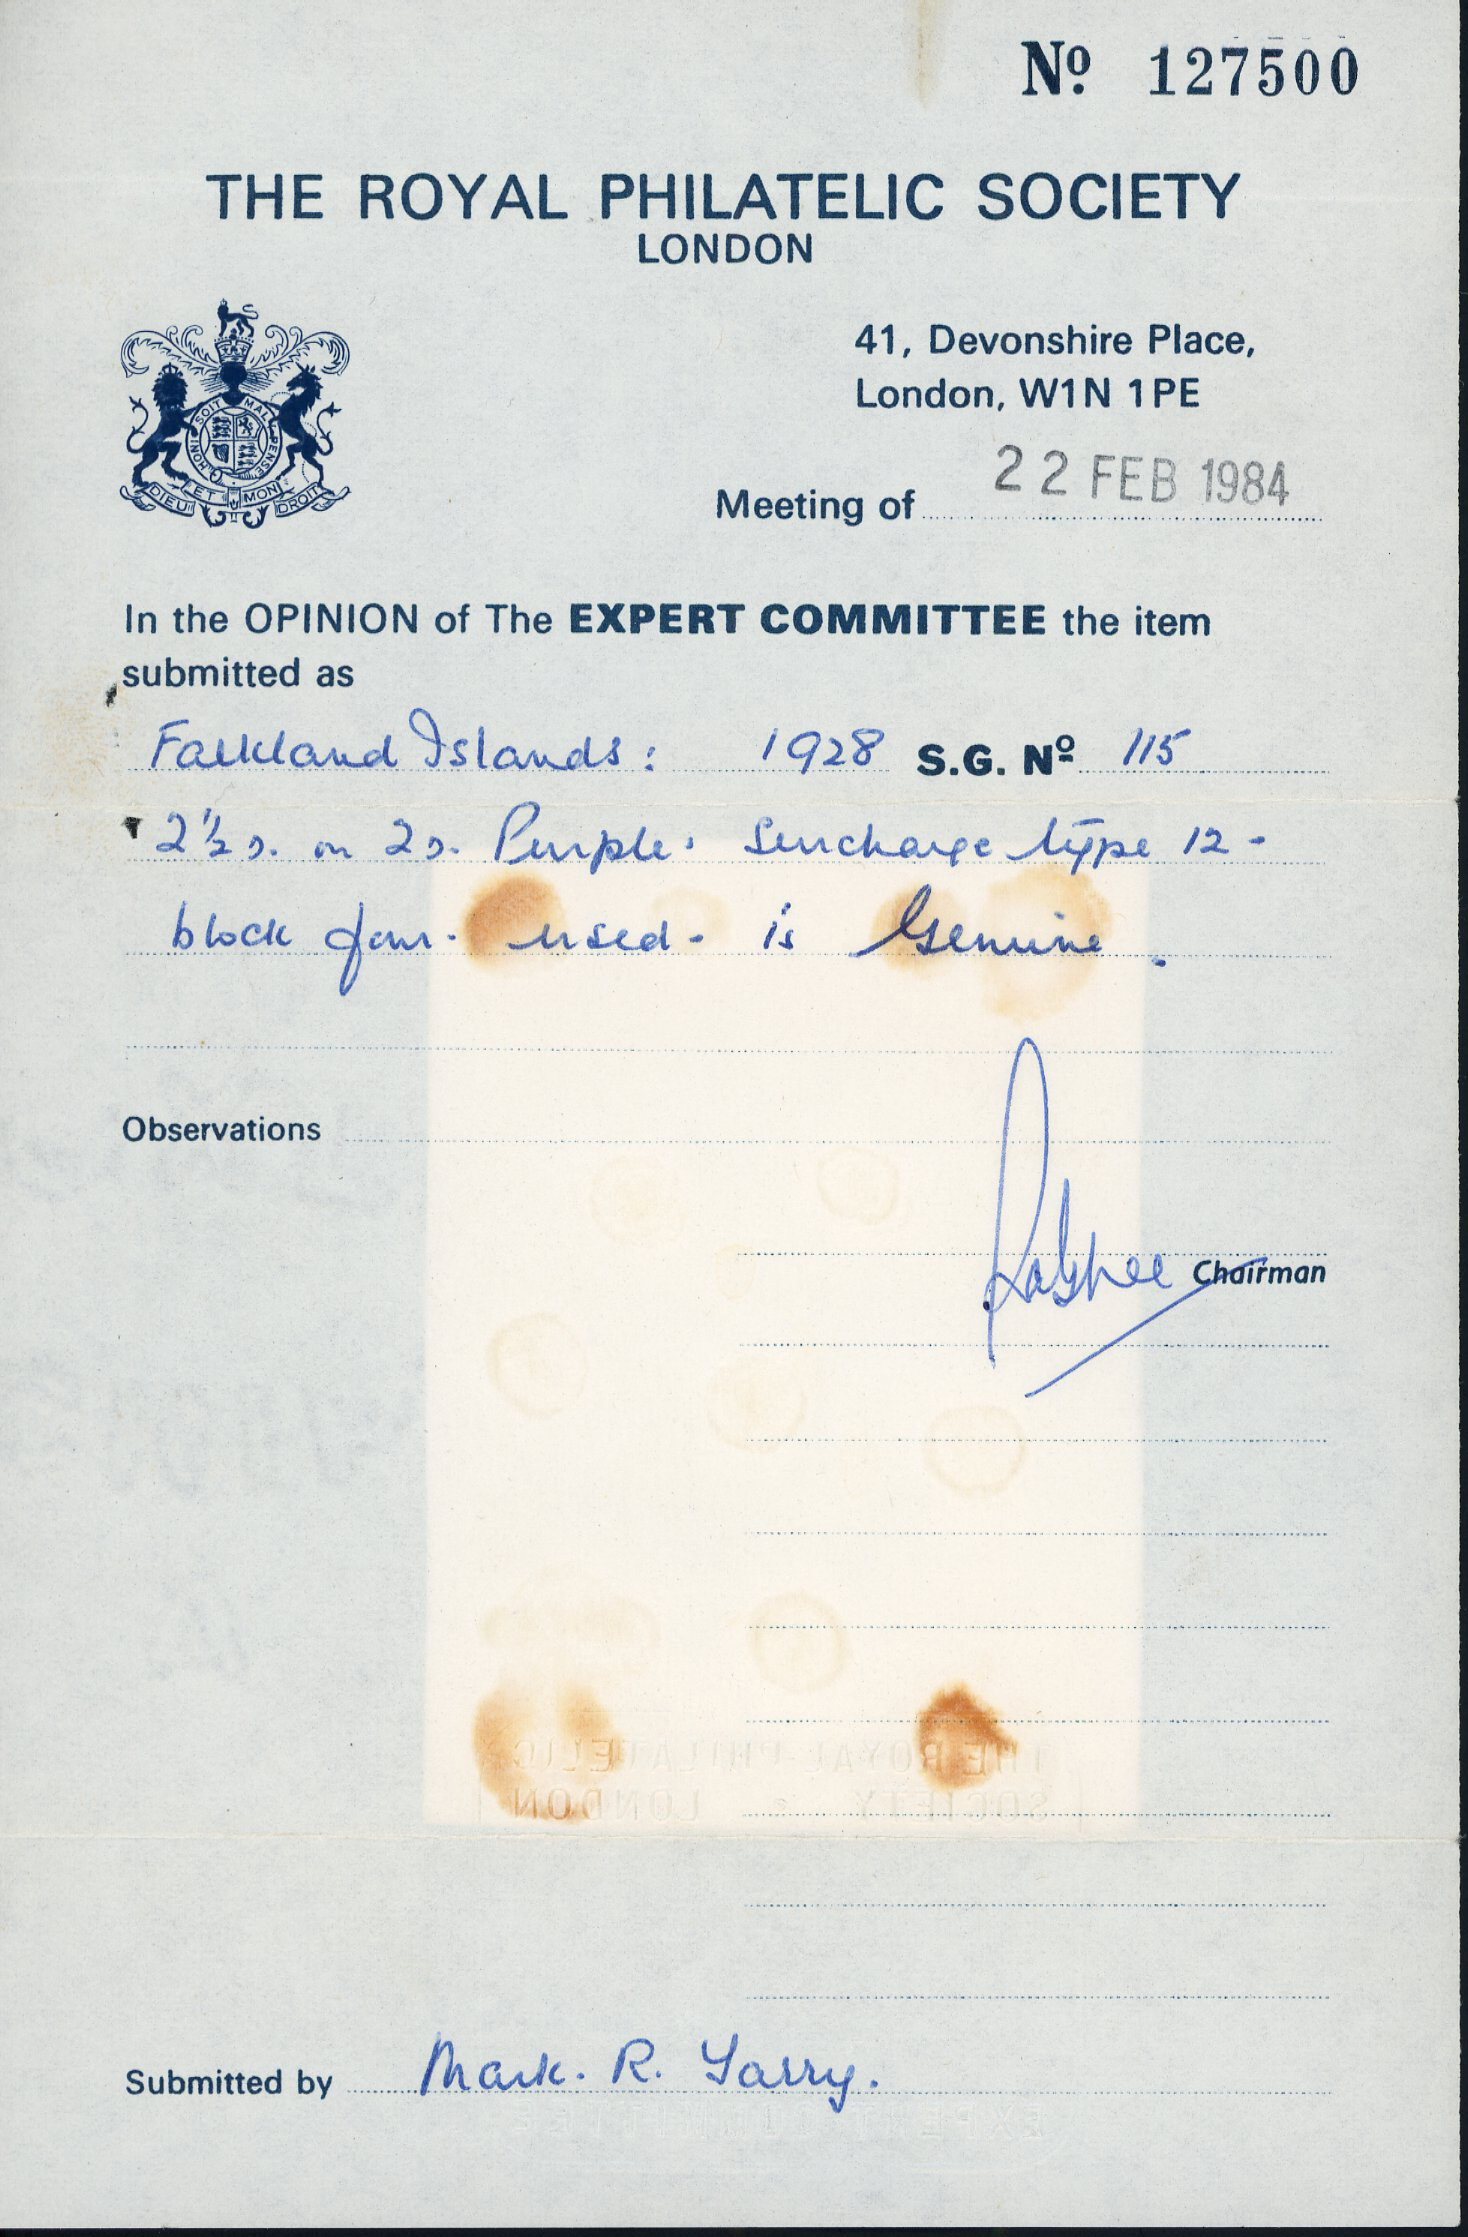 Nº 127500
THE ROYAL PHILATELIC SOCIETY
LONDON
41, Devonshire Place,
London, W1N 1PE
SOIT MAL PENSE HONI
DIEU ET MON DROIT
Meeting of 22 FEB 1984
In the OPINION of The EXPERT COMMITTEE the item
submitted as
Falkland Islands: 1928 S.G. Nº 115
2½ d. on 2d. Purple. Surcharge type 12 -
block four. used - is Genuine.
Observations
Chairman
THE ROYAL PHILATELIC
SOCIETY LONDON
Submitted by Mark. R.
EXPERT COMMITTEE